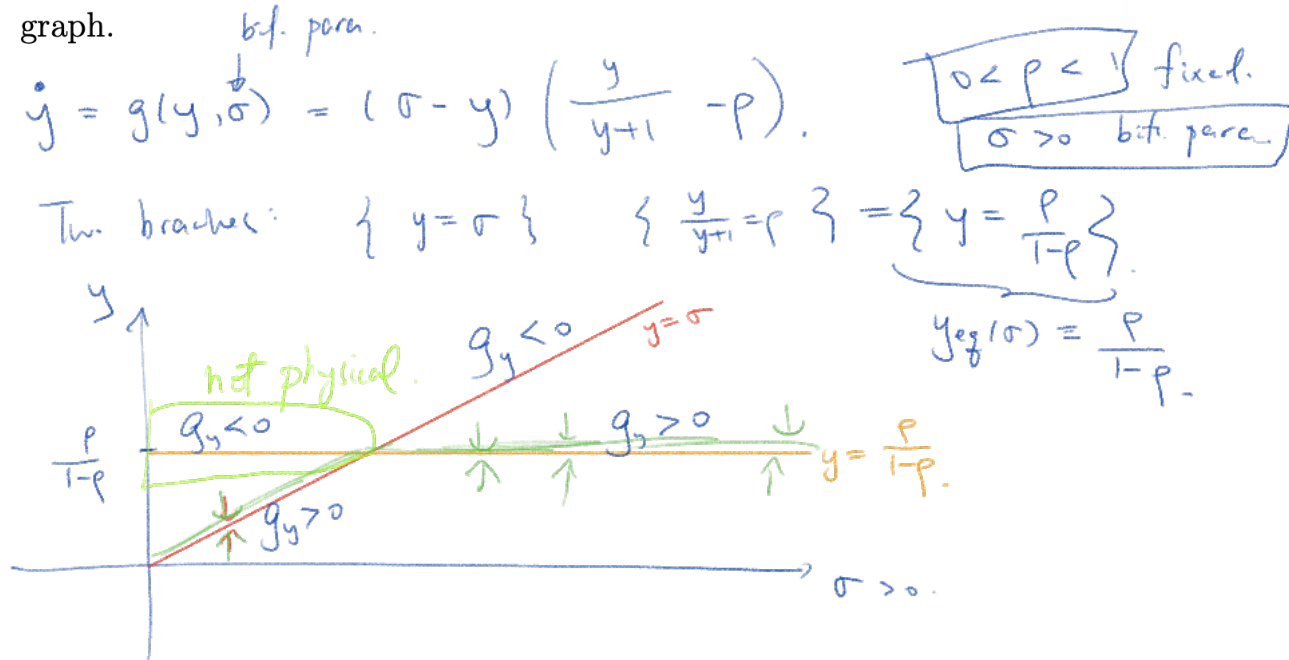 graph.
bif. para.
ẏ = g(y, σ) = (σ - y) ( y/(y+1) - ρ ).
0 < ρ < 1 fixed.
σ > 0 bif. para.
Two braches: { y = σ } { y/(y+1) = ρ } = { y = ρ/(1-ρ) }.
y_eq(σ) = ρ/(1-ρ).
y
g_y < 0
y = σ
not physical.
g_y < 0
g_y > 0
ρ/(1-ρ)
y = ρ/(1-ρ).
g_y > 0
σ > 0.